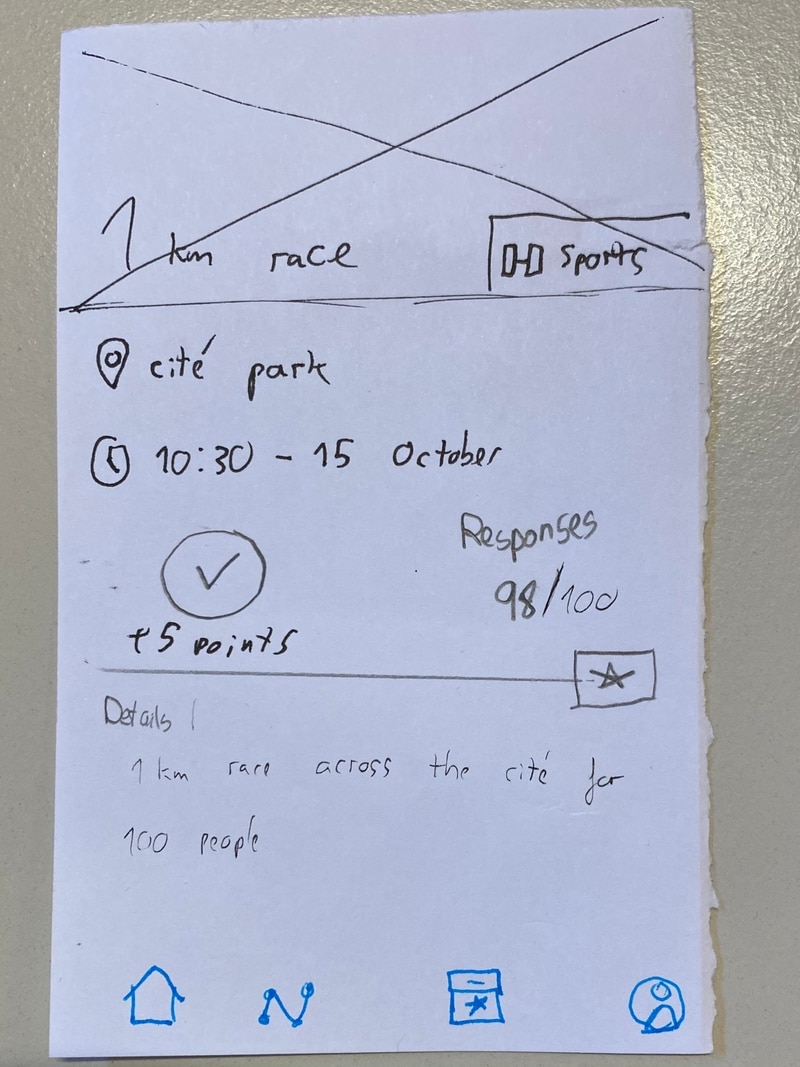 1 km race
Sports
cité park
10:30 - 15 October
Responses
98/100
+5 points
Details
1 km race across the cité for
100 people